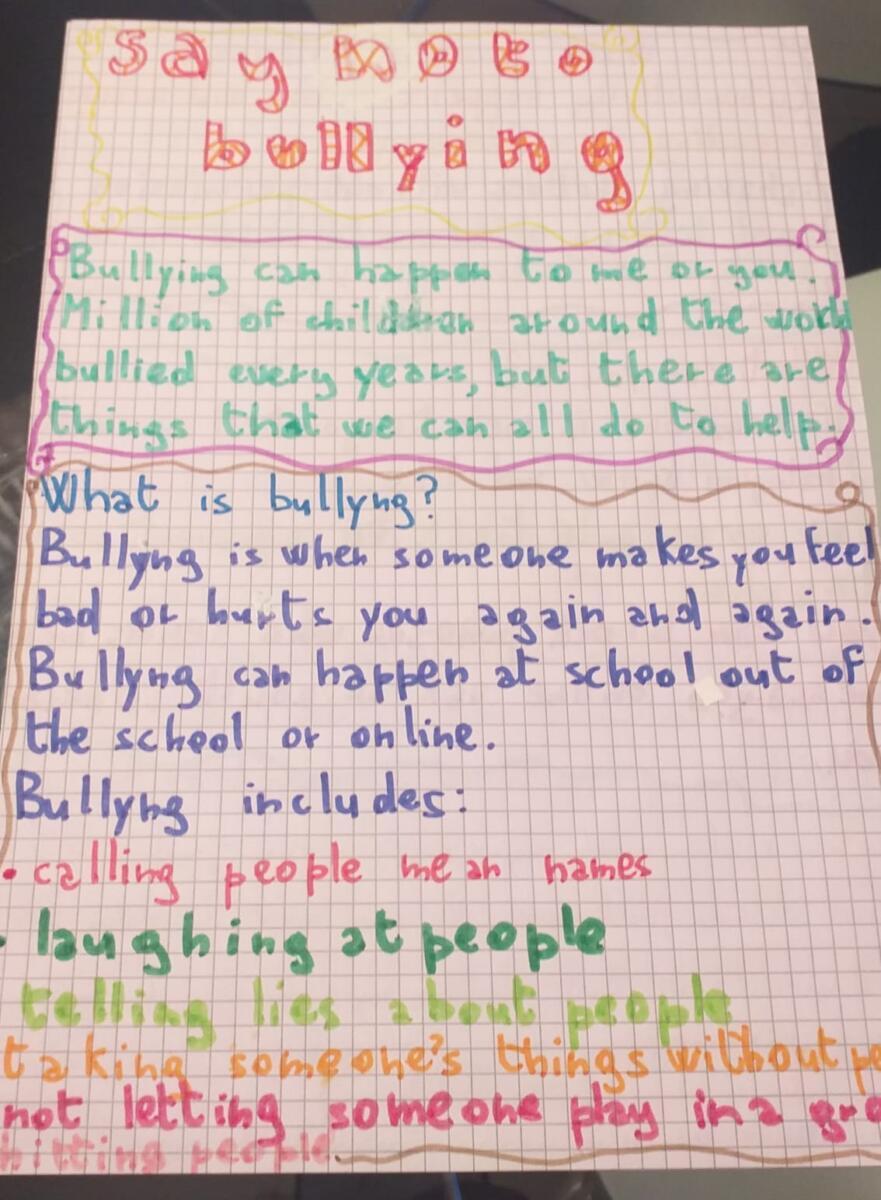 say no to
bullying
Bullying can happen to me or you.
Million of children around the world
bullied every years, but there are
things that we can all do to help.
What is bullyng?
Bullyng is when someone makes you feel
bad or hurts you again and again.
Bullyng can happen at school out of
the school or online.
Bullyng includes:
• calling people mean names
• laughing at people
telling lies about people
taking someone's things without pe
not letting someone play in a gro
hitting people.